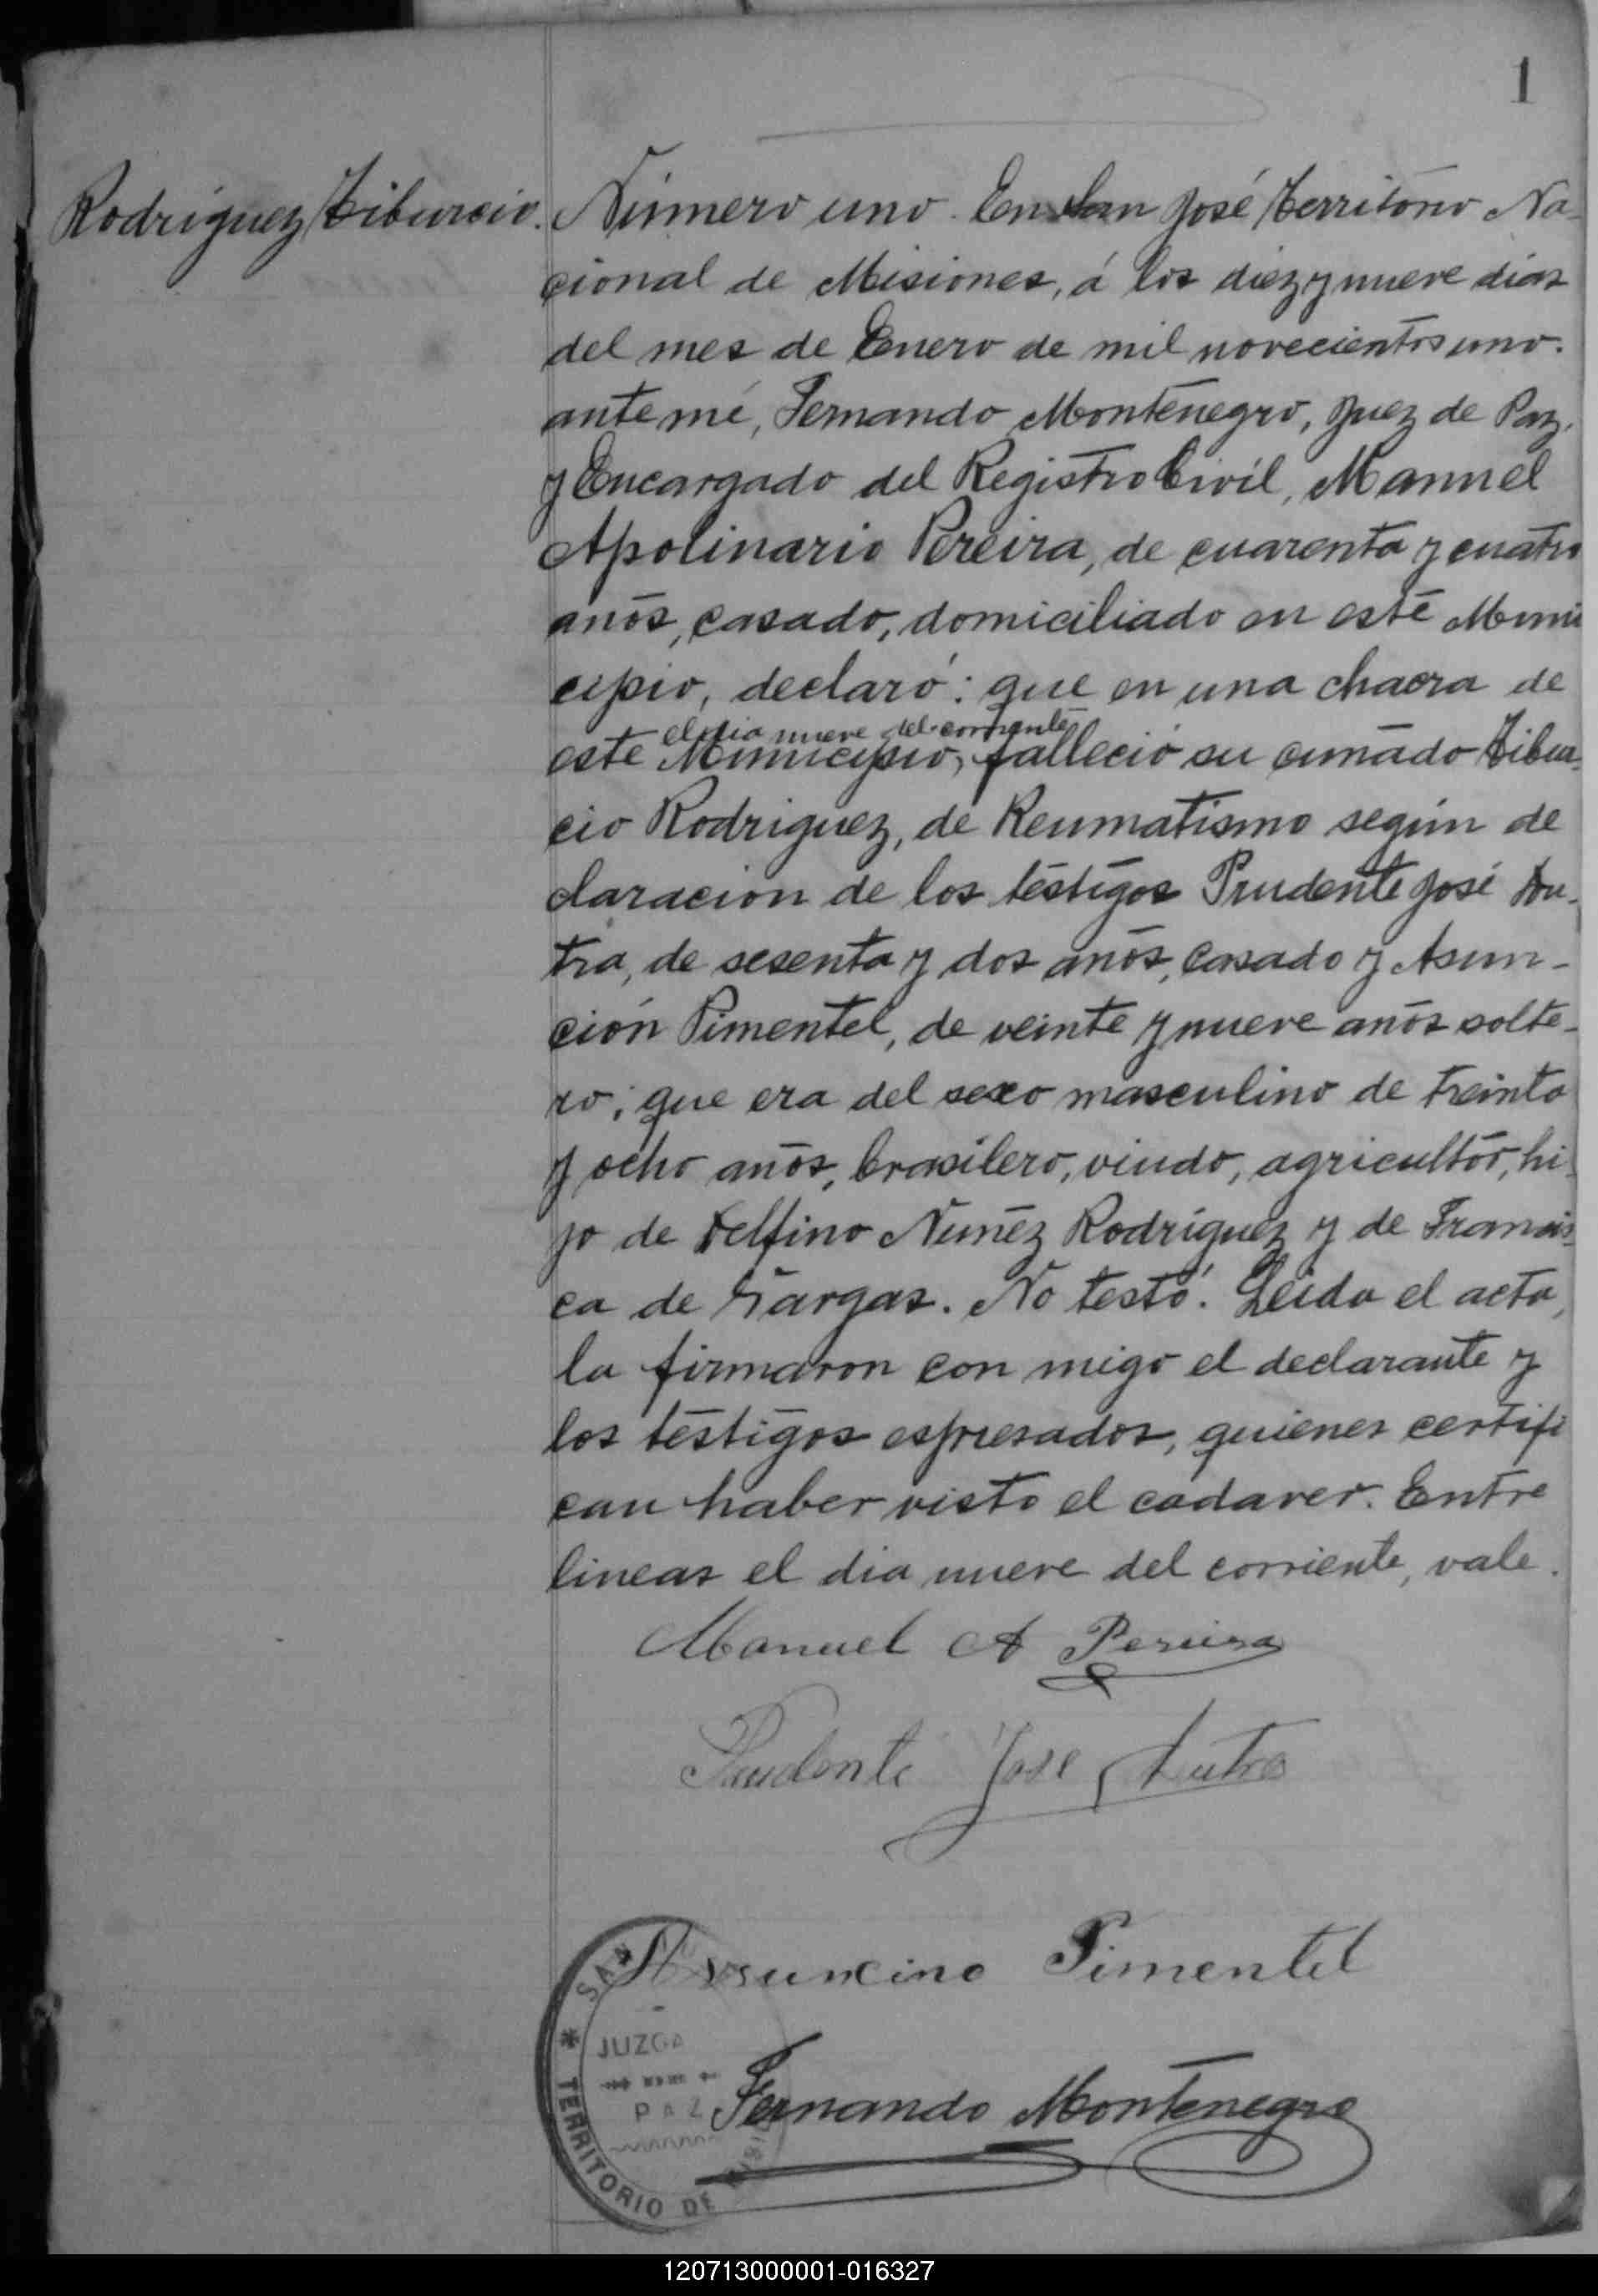 1
Rodriguez Tiburcio.
Número uno. En San José Territorio Na-
cional de Misiones, á los diez y nueve dias
del mes de Enero de mil novecientos uno.
ante mé, Fernando Montenegro, Juez de Paz,
y Encargado del Registro Civil, Manuel
Apolinario Pereira, de cuarenta y cuatro
años, casado, domiciliado en este Muni
cipio, declaró: que en una chacra de
el dia nueve del corriente
este Municipio, falleció su cuñado Tibur-
cio Rodriguez, de Reumatismo según de
claracion de los testigos Prudente José Du-
tra, de sesenta y dos años, casado y Asun-
ción Pimentel, de veinte y nueve años solte-
ro; que era del sexo masculino de treinta
y ocho años, brasilero, viudo, agricultor, hi
jo de Delfino Nuñez Rodriguez y de Francis-
ca de Vargas. No testó. Leida el acta,
la firmaron con migo el declarante y
los testigos espresados, quienes certifi
can haber visto el cadaver. Entre
lineas el dia nueve del corriente, vale.
Manuel A Pereira
Prudente Jose Dutra
Assuncino Pimentel
SAN
JUZGA
PAZ
TERRITORIO DE MISI
Fernando Montenegro
120713000001-016327